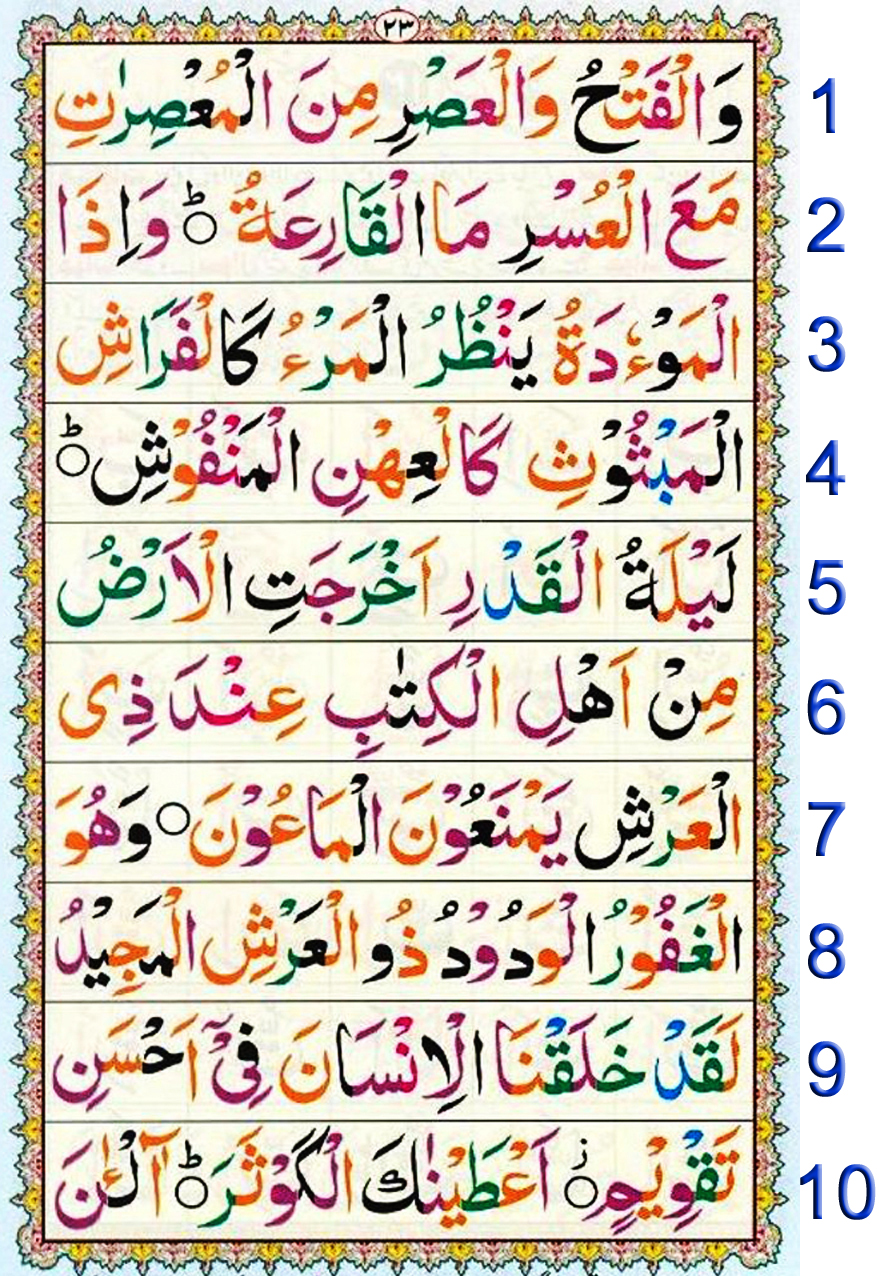 ٢٣
وَالْفَتْحُ وَالْعَصْرِ مِنَ الْمُعْصِرٰتِ 1
مَعَ الْعُسْرِ مَا الْقَارِعَةُ ؕ وَاِذَا 2
الْمَوْءٗدَةُ يَنْظُرُ الْمَرْءُ كَالْفَرَاشِ 3
الْمَبْثُوْثِ كَالْعِهْنِ الْمَنْفُوْشِ ؕ 4
لَيْلَةُ الْقَدْرِ اَخْرَجَتِ الْاَرْضُ 5
مِنْ اَهْلِ الْكِتٰبِ عِنْدَ ذِى 6
الْعَرْشِ يَمْنَعُوْنَ الْمَاعُوْنَ ○ وَهُوَ 7
الْغَفُوْرُ الْوَدُوْدُ ذُو الْعَرْشِ الْمَجِيْدُ 8
لَقَدْ خَلَقْنَا الْاِنْسَانَ فِىْۤ اَحْسَنِ 9
تَقْوِيْمٍ ○ز اَعْطَيْنٰكَ الْكَوْثَرَ ○ؕ آلْـٰٔنَ 10